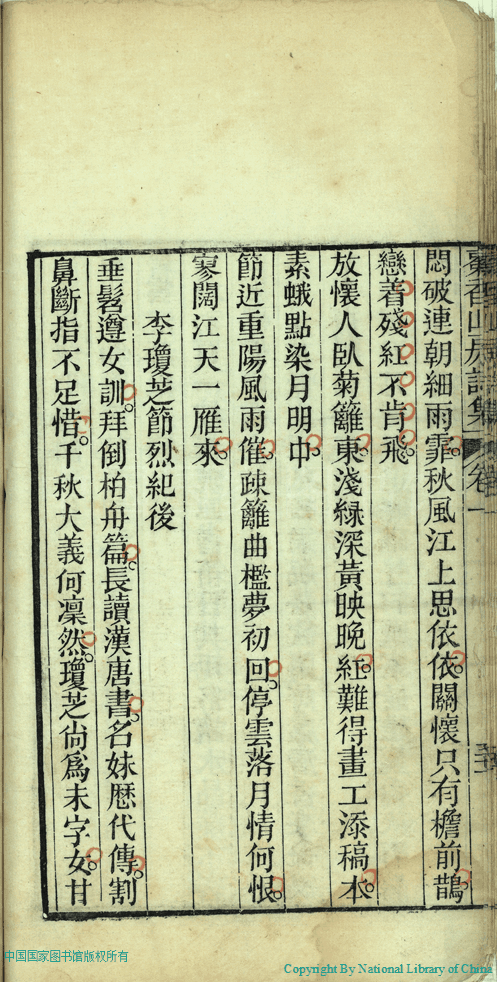 悶破連朝細雨霏秋風江上思依依關懷只有檐前鵲
戀着殘紅不肯飛
放懷人臥菊籬東淺綠深黃映晚紅難得畫工添稿本
素蛾點染月明中
節近重陽風雨催疎籬曲檻夢初回停雲落月情何恨
寥闊江天一雁來
李瓊芝節烈紀後
垂髫遵女訓拜倒柏舟篇長讀漢唐書名姝歷代傳割
鼻斷指不足惜千秋大義何凜然瓊芝尙爲未字女甘
中国国家图书馆版权所有
Copyright By National Library of China